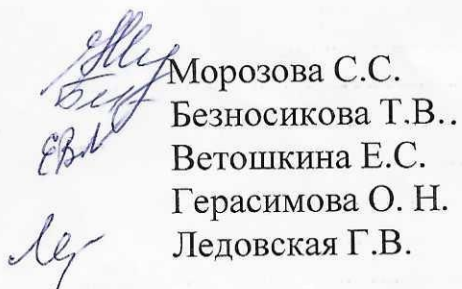 Морозова С.С.
Безносикова Т.В..
Ветошкина Е.С.
Герасимова О. Н.
Ледовская Г.В.